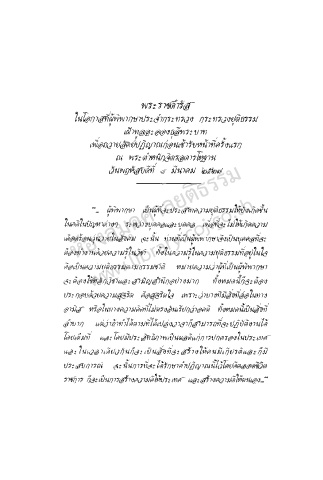 พระราชดำรัส
ในโอกาสที่ผู้พิพากษาประจำกระทรวง กระทรวงยุติธรรม
เฝ้าทูลละอองธุลีพระบาท
เพื่อถวายสัตย์ปฏิญาณก่อนเข้ารับหน้าที่ครั้งแรก
ณ พระตำหนักจิตรลดารโหฐาน
วันพฤหัสบดีที่ ๘ มีนาคม ๒๕๒๒
"... ผู้พิพากษา เป็นผู้ที่จะประสาทความยุติธรรมให้บังเกิดขึ้น
ในคดีในปัญหาต่างๆ ระหว่างบุคคลและบุคคล เพื่อที่จะไม่ให้เกิดความ
เดือดร้อนวุ่นวายในสังคม ฉะนั้น ท่านที่เป็นผู้พิพากษาจึงเป็นบุคคลที่จะ
ต้องทำงานด้วยความรู้ในวิชา ทั้งในความรู้ในความยุติธรรมที่อยู่ในใจ
คือเป็นความยุติธรรมตามธรรมชาติ หมายความว่าผู้ที่เป็นผู้พิพากษา
จะต้องใช้หลักวิชาและสามัญสำนึกอย่างมาก ทั้งหมดนี้ก็จะต้อง
ประกอบด้วยความสุจริต คือสุจริตใจ เพราะว่าบางทีมีสิ่งที่ล่อใจทาง
อามิส หรือในทางความคิดที่ไม่ตรงอันเรียกว่าอคติ ทั้งหมดนี้เป็นสิ่งที่
ลำบาก แต่ว่าถ้าทำได้ตามที่ได้เปล่งวาจาก็สามารถที่จะปฏิบัติงานได้
โดยเต็มที่ และโดยมีประสิทธิภาพเป็นผลดีแก่การปกครองในประเทศ
และในเวลาเดียวกันก็จะเป็นสิ่งที่จะสร้างให้ตนมีเกียรติและก็มี
ประสบการณ์ ฉะนั้นการที่จะได้รักษาคำปฏิญาณนี้ไว้โดยตลอดชีวิต
ราชการ ก็จะเป็นการสร้างความดีให้ประเทศ และสร้างความดีให้ตนเอง..."